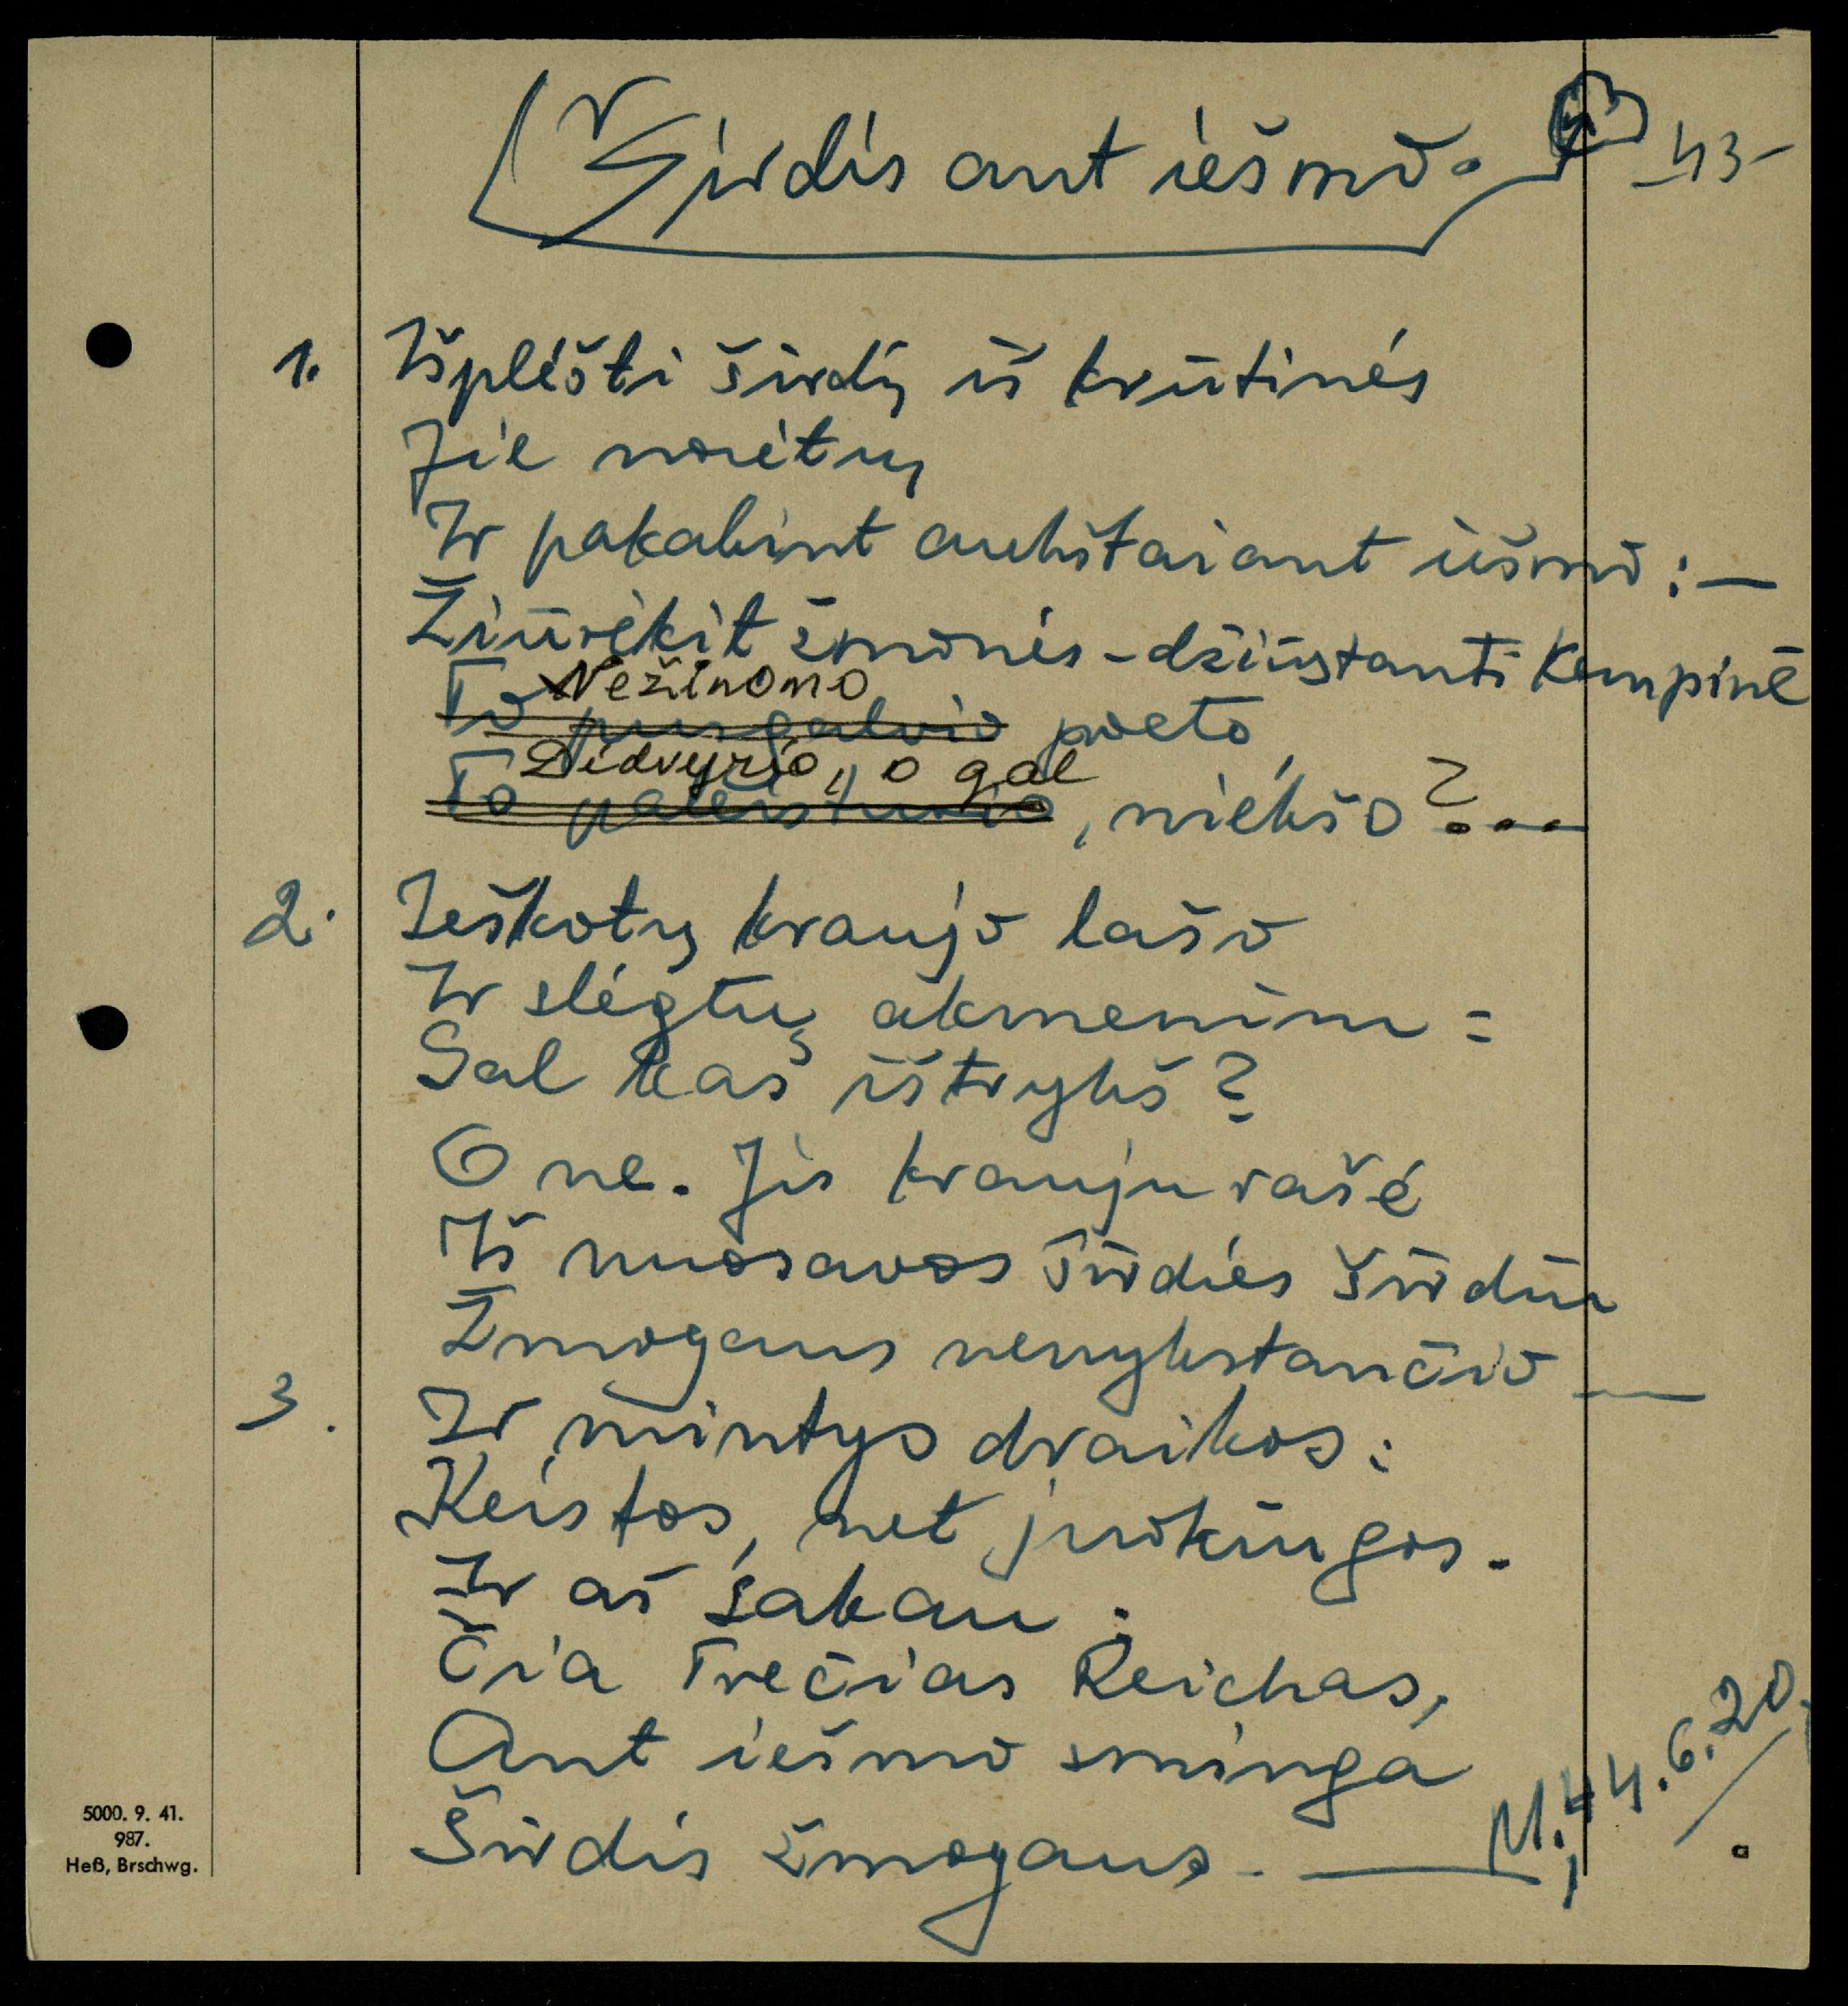 Širdis ant iešmo.
-43-
1. Išplėšti širdį iš krūtinės
Jie norėtų
Ir pakabint aukštai ant iešmo: —
Žiūrėkit žmonės - džiūstanti kempinė
Nežinomo
To pusgalvio poeto,
Didvyrio, o gal
To paleistuvio, niekšo?...
2. Ieškotų kraujo lašo
Ir slėgtų akmenim =
Gal kas ištrykš?
O ne. Jis krauju rašė
Iš nuosavos širdies širdim
Žmogaus nenykstančio —
3. Ir mintys draikos:
Keistos, net juokingos.
Ir aš sakau:
Čia Trečias Reichas,
Ant iešmo sminga
Širdis žmogaus. —
M. 44.6.20.
5000. 9. 41.
987.
Heß, Brschwg.